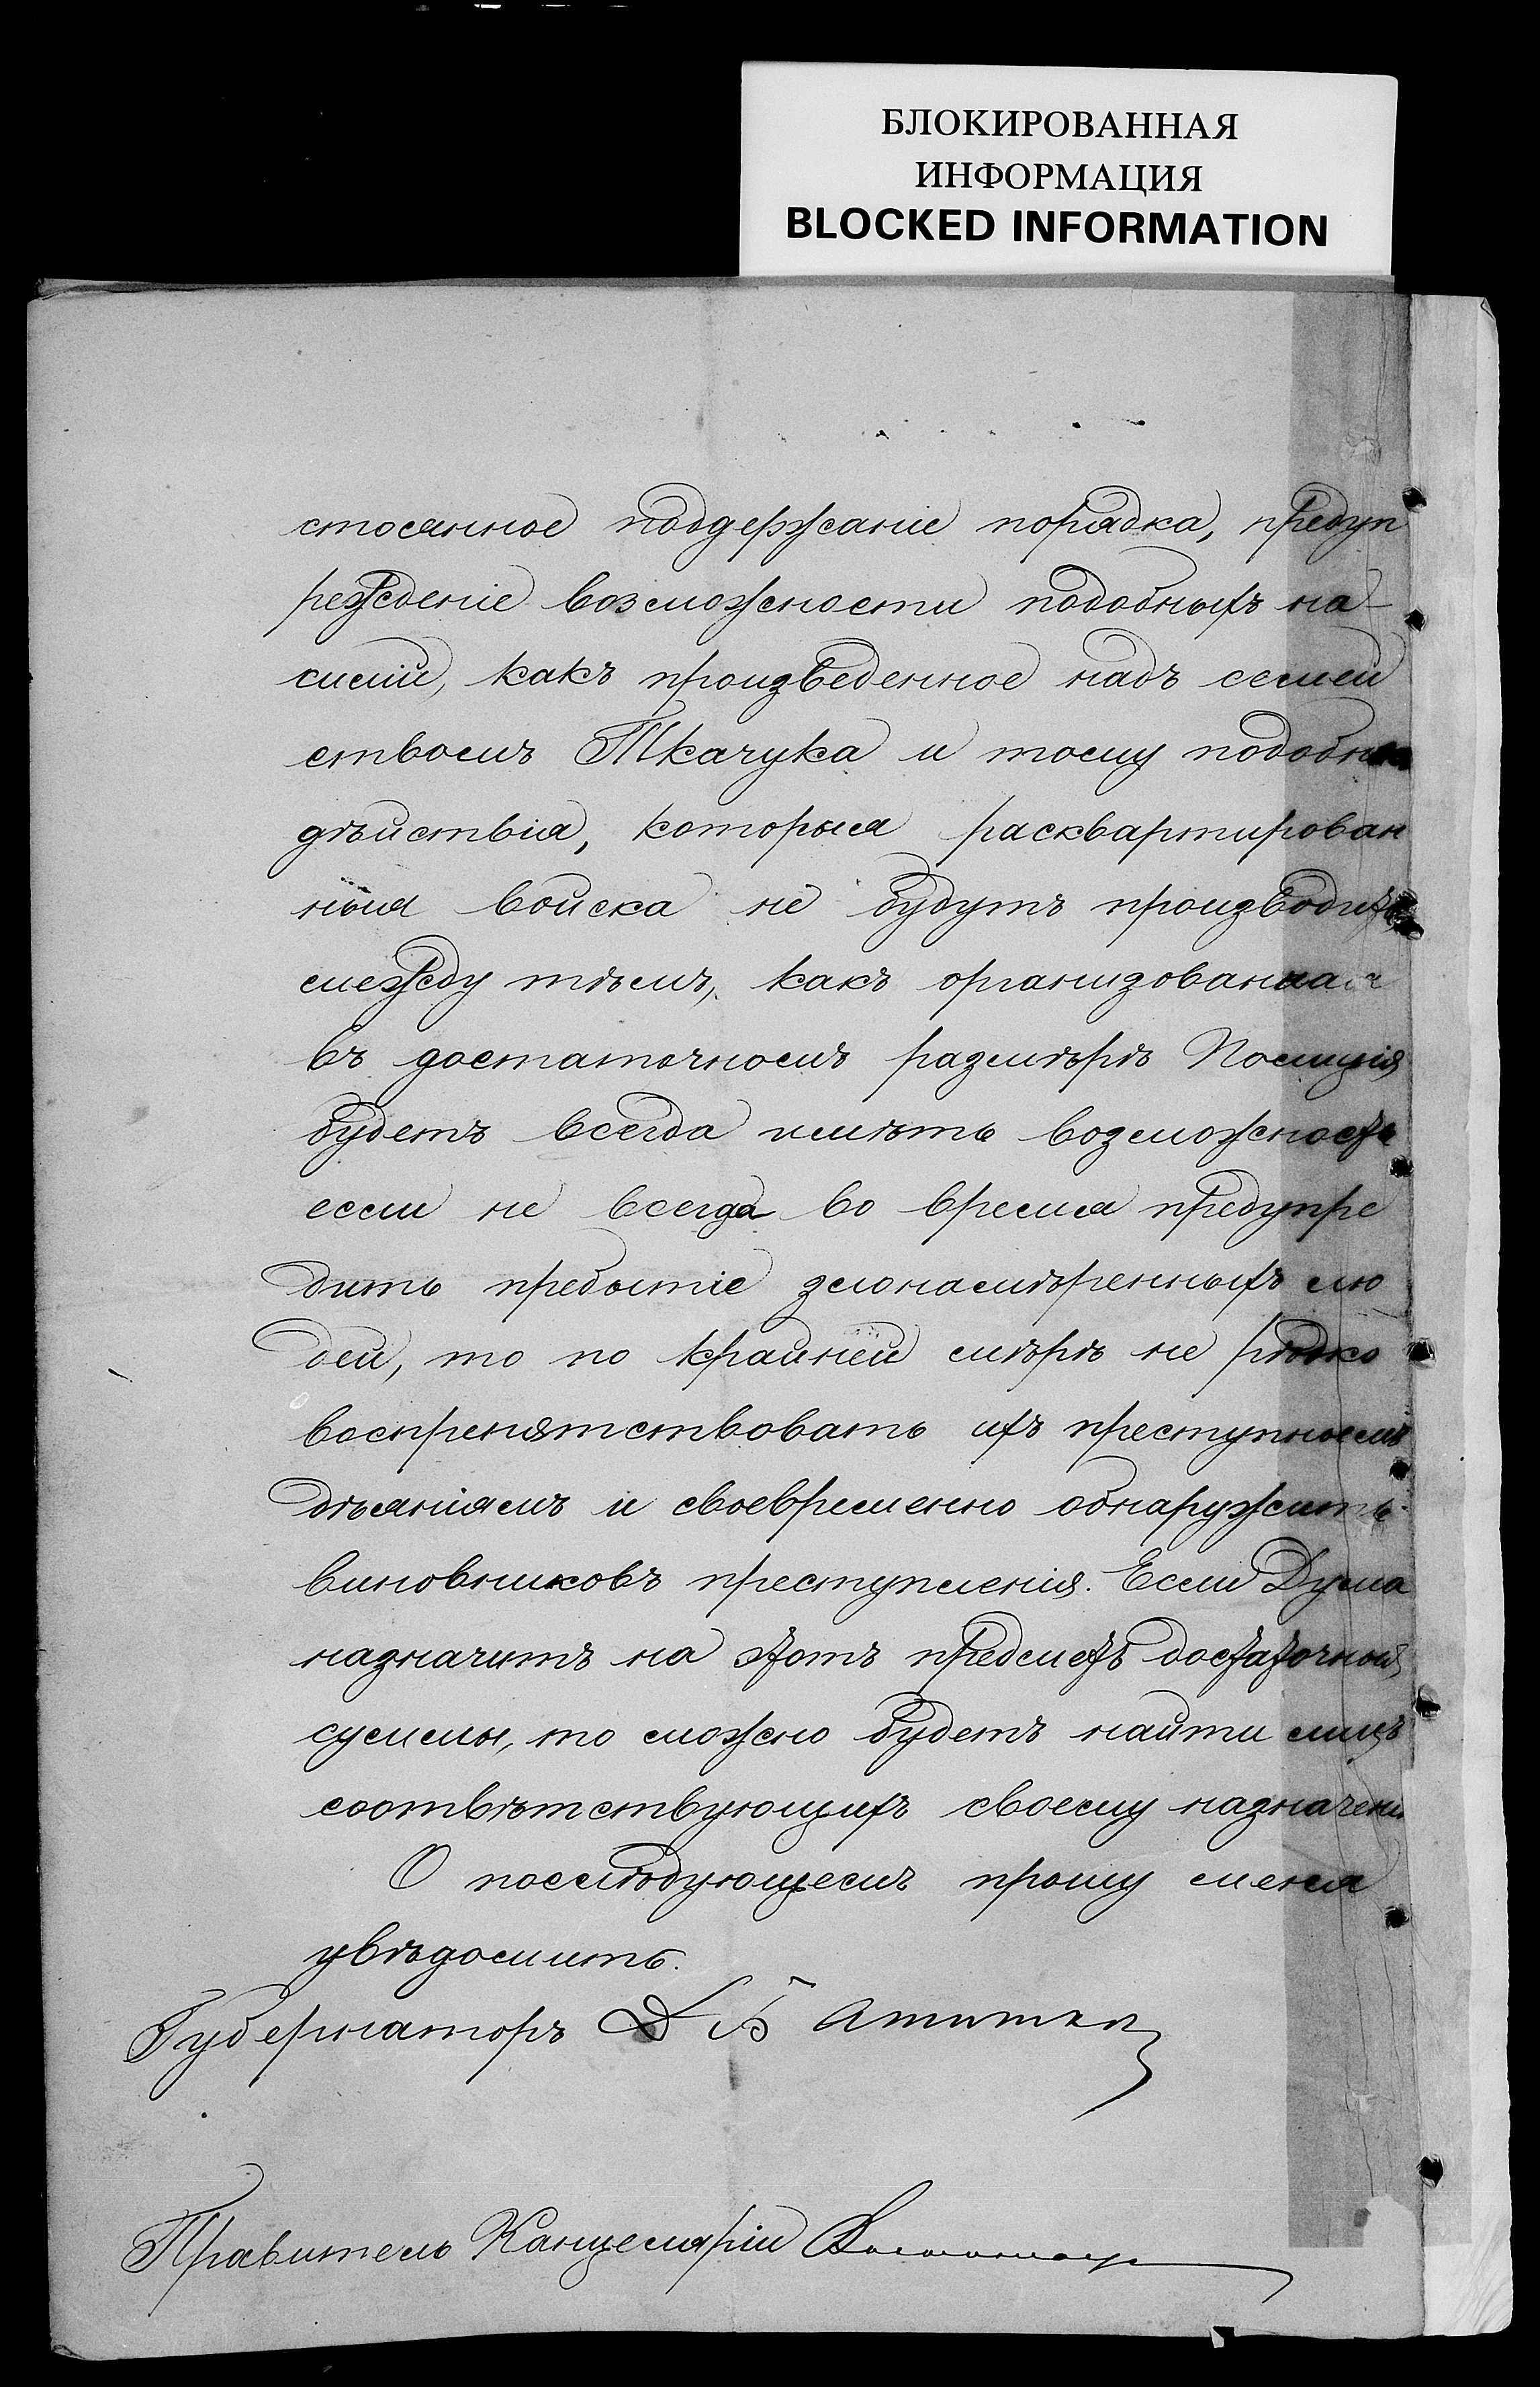 БЛОКИРОВАННАЯ
ИНФОРМАЦИЯ
BLOCKED INFORMATION
стоянное поддержаніе порядка, предуп
режденіе возможности подобныхъ на-
силій, какъ произведенное надъ семей
ствомъ Ткачука и тому подобн
дѣйствія, которыя расквартирован
ныя войска не будутъ производить
между тѣмъ, какъ организованная
въ достаточномъ размѣрѣ Полиція
будетъ всегда имѣть возможность
если не всегда во время предупре
дить прибытіе злонамѣренныхъ лю
дей, то по крайней мѣрѣ не рѣдко
воспрепятствовать ихъ преступнымъ
дѣяніямъ и своевременно обнаружить
виновниковъ преступленія. Если Дума
назначитъ на этотъ предметъ достаточныя
суммы, то можно будетъ найти лицъ
соотвѣтствующихъ своему назначен
О послѣдующемъ прошу меня
увѣдомить.
Губернаторъ Д Батюшков
Правитель Канцеляріи